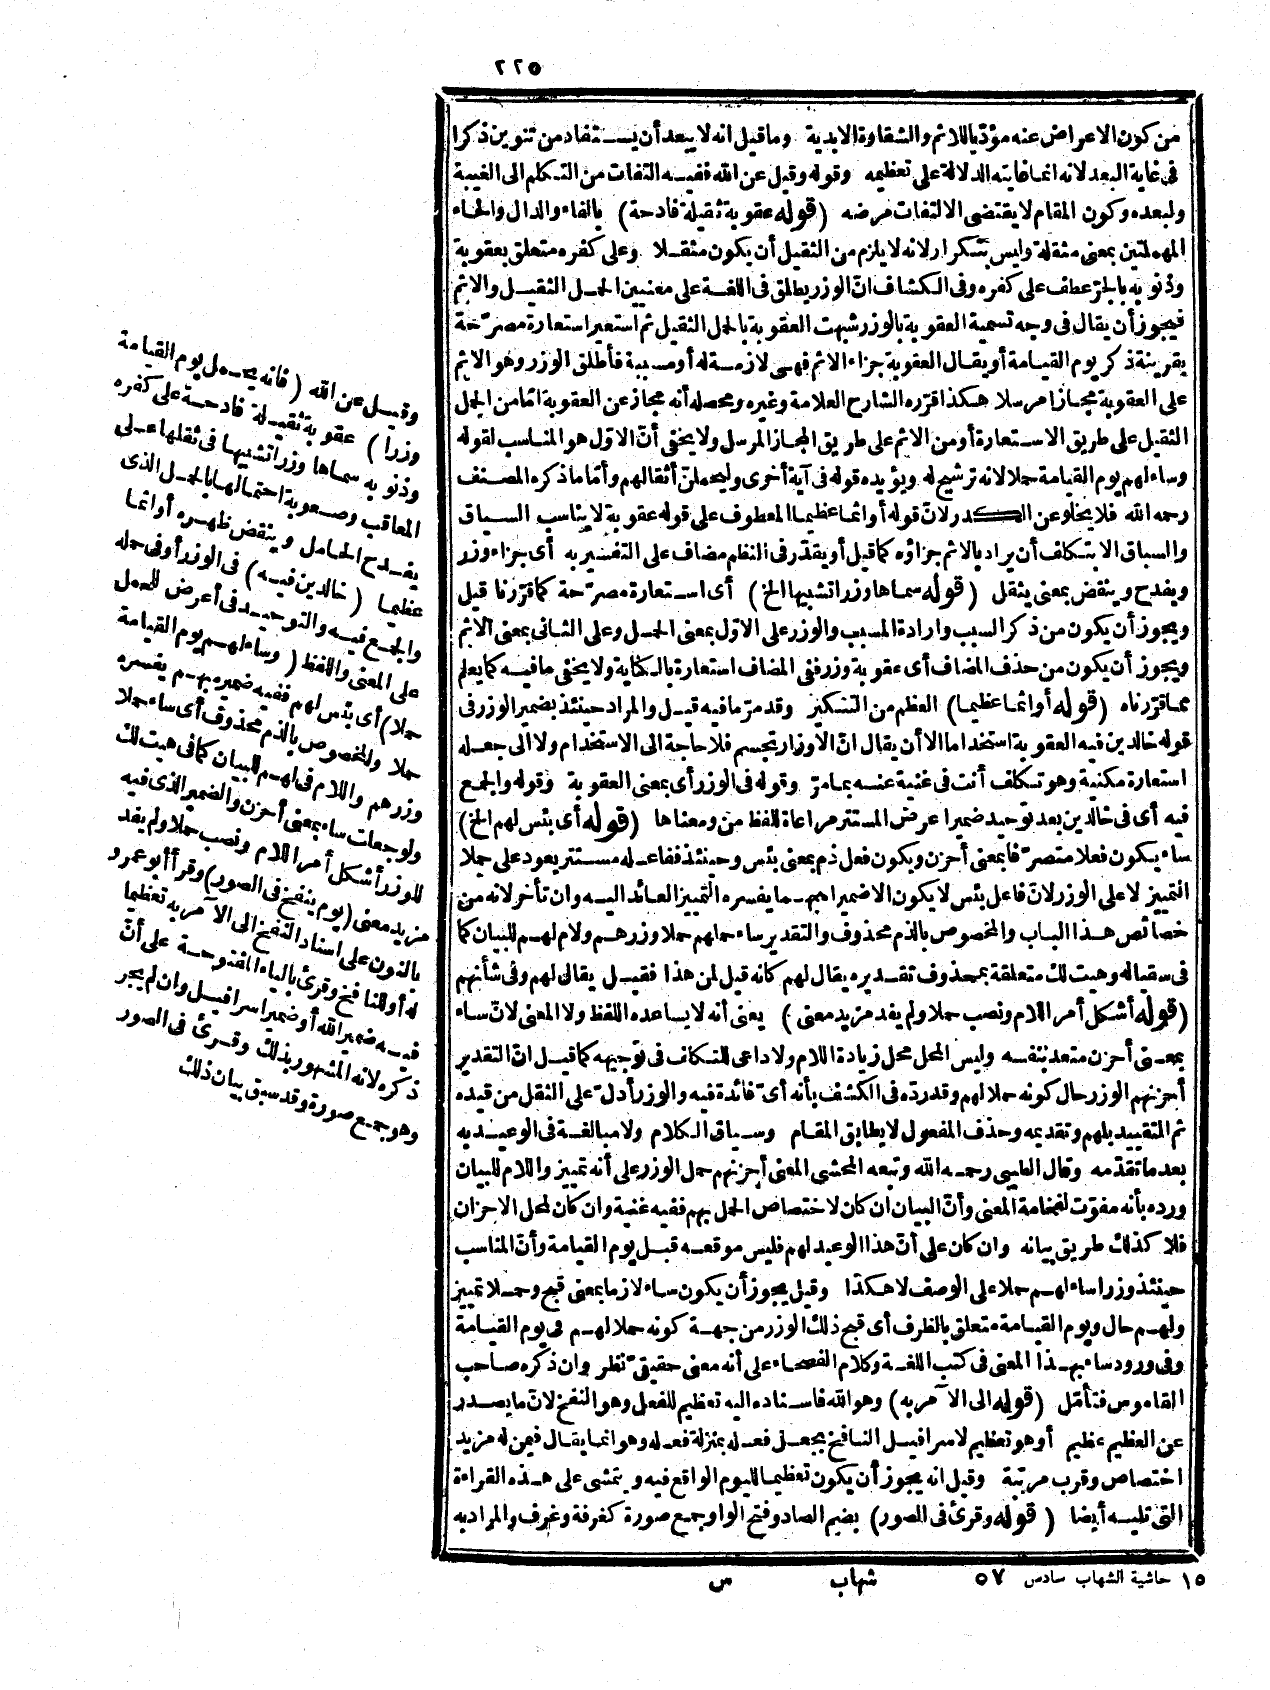 ٢٢٥
من كون الاعراض عنه مؤدّيا للاثم والشقاوة الابدية وما قيل انه لا يبعد أن يستفاد من تنوين ذكرا
فى غاية البعد لانه انما غايته الدلالة على تعظيمه وقوله وقيل عن الله ففيه التفات من التكلم الى الغيبة
ولبعده وكون المقام لا يقتضى الالتفات مرضه (قوله عقوبة ثقيلة فادحة) بالفاء والدال والحاء
المهملتين بمعنى مثقلة وليس بتكرار لانه لا يلزم من الثقيل أن يكون مثقلا وعلى كفره متعلق بعقوبة
وذنوبه بالجرّ عطف على كفره وفى الكشاف انّ الوزر يطلق فى اللغة على معنيين الحمل الثقيل والاثم
فيجوز أن يقال فى وجه تسمية العقوبة بالوزر شبهت العقوبة بالحمل الثقيل ثم استعير استعارة مصرّحة
بقرينة ذكر يوم القيامة أو يقال العقوبة جزاء الاثم فهى لازمة له أو مسببة فأطلق الوزر وهو الاثم
على العقوبة مجازا مرسلا هكذا قرّره الشارح العلامة وغيره ومحصله أنه مجاز عن العقوبة امّا من الحمل
الثقيل على طريق الاستعارة أو من الاثم على طريق المجاز المرسل ولا يخفى أنّ الاوّل هو المناسب لقوله
وساء لهم يوم القيامة حملا لانه ترشيح له ويؤيده قوله فى آية أخرى وليحملنّ أثقالهم وأمّا ما ذكره المصنف
رحمه الله فلا يخلو عن الكدر لانّ قوله أو اثما عظيما المعطوف على قوله عقوبة لا يناسب السياق
والسباق الا بتكلف أن يراد بالاثم جزاؤه كما قيل أو يقدّر فى النظم مضاف على التفسير به أى جزاء وزر
ويفدح وينقض بمعنى يثقل (قوله سماها وزرا تشبيها الخ) أى استعارة مصرّحة كما قرّرنا قيل
ويجوز أن يكون من ذكر السبب وارادة المسبب والوزر على الاوّل بمعنى الحمل وعلى الثانى بمعنى الاثم
ويجوز أن يكون من حذف المضاف أى عقوبة وزر ففى المضاف استعارة بالكناية ولا يخفى ما فيه كما يعلم
مما قرّرناه (قوله أو اثما عظيما) العظم من التنكير وقد مرّ ما فيه قيل والمراد حينئذ بضمير الوزر فى
قوله خالدين فيه العقوبة استخداما الا أن يقال انّ الاوزار تجسم فلا حاجة الى الاستخدام ولا الى جعله
استعارة مكنية وهو تكلف أنت فى غنية عنه بما مرّ وقوله فى الوزر أى بمعنى العقوبة وقوله والجمع
فيه أى فى خالدين بعد توحيد ضمير أعرض المستتر مراعاة للفظ من ومعناها (قوله أى بئس لهم الخ)
ساء يكون فعلا متصرّفا بمعنى أحزن ويكون فعل ذم بمعنى بئس وحينئذ ففاعله مستتر يعود على حملا
التمييز لا على الوزر لانّ فاعل بئس لا يكون الا ضميرا مبهما يفسره التمييز العائد اليه وان تأخر لانه من
خصائص هذا الباب والمخصوص بالذم محذوف والتقدير ساء حملهم حملا وزرهم ولام لهم للبيان كما
فى سقيا له وهيت لك متعلقة بمحذوف تقديره يقال لهم كانه قيل لمن هذا فقيل يقال لهم وفى شأنهم
(قوله أشكل أمر اللام ونصب حملا ولم يفد مزيد معنى) يعنى أنه لا يساعده اللفظ ولا المعنى لانّ ساء
بمعنى أحزن متعد بنفسه وليس المحل محل زيادة اللام ولا داعى للتكلف فى توجيهه كما قيل انّ التقدير
أحزنهم الوزر حال كونه حملا لهم وقد ردّه فى الكشف بأنه أىّ فائدة فيه والوزر أدلّ على الثقل من قيده
ثم التقييد بلهم وتقديمه وحذف المفعول لا يطابق المقام وسياق الكلام ولا مبالغة فى الوعيد به
بعد ما تقدّمه وقال الطيبى رحمه الله وتبعه المحشى المعنى أحزنهم حمل الوزر على أنه تمييز واللام للبيان
ورده بأنه مفوّت لفخامة المعنى وأنّ البيان ان كان لاختصاص الحمل بهم ففيه غنية وان كان لمحل الاحزان
فلا كذلك طريق بيانه وان كان على أنّ هذا الوعيد لهم فليس موقعه قبل يوم القيامة وأنّ المناسب
حينئذ وزرا ساء لهم حملا على الوصف لا هكذا وقيل يجوز أن يكون ساء لازما بمعنى قبح وحملا تمييز
ولهم حال ويوم القيامة متعلق بالظرف أى قبح ذلك الوزر من جهة كونه حملا لهم فى يوم القيامة
وفى ورود ساء بهذا المعنى فى كتب اللغة وكلام الفصحاء على أنه معنى حقيقىّ نظر وان ذكره صاحب
القاموس فتأمّل (قوله الى الآمر به) وهو الله فاسناده اليه تعظيم للفعل وهو النفخ لانّ ما يصدر
عن العظيم عظيم أو هو تعظيم لاسرافيل النافخ بجعل فعله بمنزلة فعله وهو انما يقال فيمن له مزيد
اختصاص وقرب مرتبة وقيل انه يجوز أن يكون تعظيما لليوم الواقع فيه ويتمشى على هذه القراءة
التى تليه أيضا (قوله وقرئ فى الصور) بضم الصاد وفتح الواو جمع صورة كغرفة وغرف والمراد به
وقيل عن الله (فانه يحمل يوم القيامة
وزرا) عقوبة ثقيلة فادحة على كفره
وذنوبه سماها وزرا تشبيها فى ثقلها على
المعاقب وصعوبة احتمالها بالحمل الذى
يفدح الحامل وينقض ظهره أو اثما
عظيما (خالدين فيه) فى الوزر أو فى حمله
والجمع فيه والتوحيد فى أعرض للحمل
على المعنى واللفظ (وساء لهم يوم القيامة
حملا) أى بئس لهم ففيه ضمير مبهم يفسره
حملا والمخصوص بالذم محذوف أى ساء حملا
وزرهم واللام فى لهم للبيان كما فى هيت لك
ولو جعلت ساء بمعنى أحزن والضمير الذى فيه
للوزر أشكل أمر اللام ونصب حملا ولم يفد
مزيد معنى (يوم ينفخ فى الصور) وقرأ أبو عمرو
بالنون على اسناد النفخ الى الآمر به تعظيما
له أو للنافخ وقرئ بالياء المفتوحة على أنّ
فيه ضمير الله أو ضمير اسرافيل وان لم يجر
ذكره لانه المشهور بذلك وقرئ فى الصور
وهو جمع صورة وقد سبق بيان ذلك
١٥ حاشية الشهاب سادس ٥٧ شهاب س